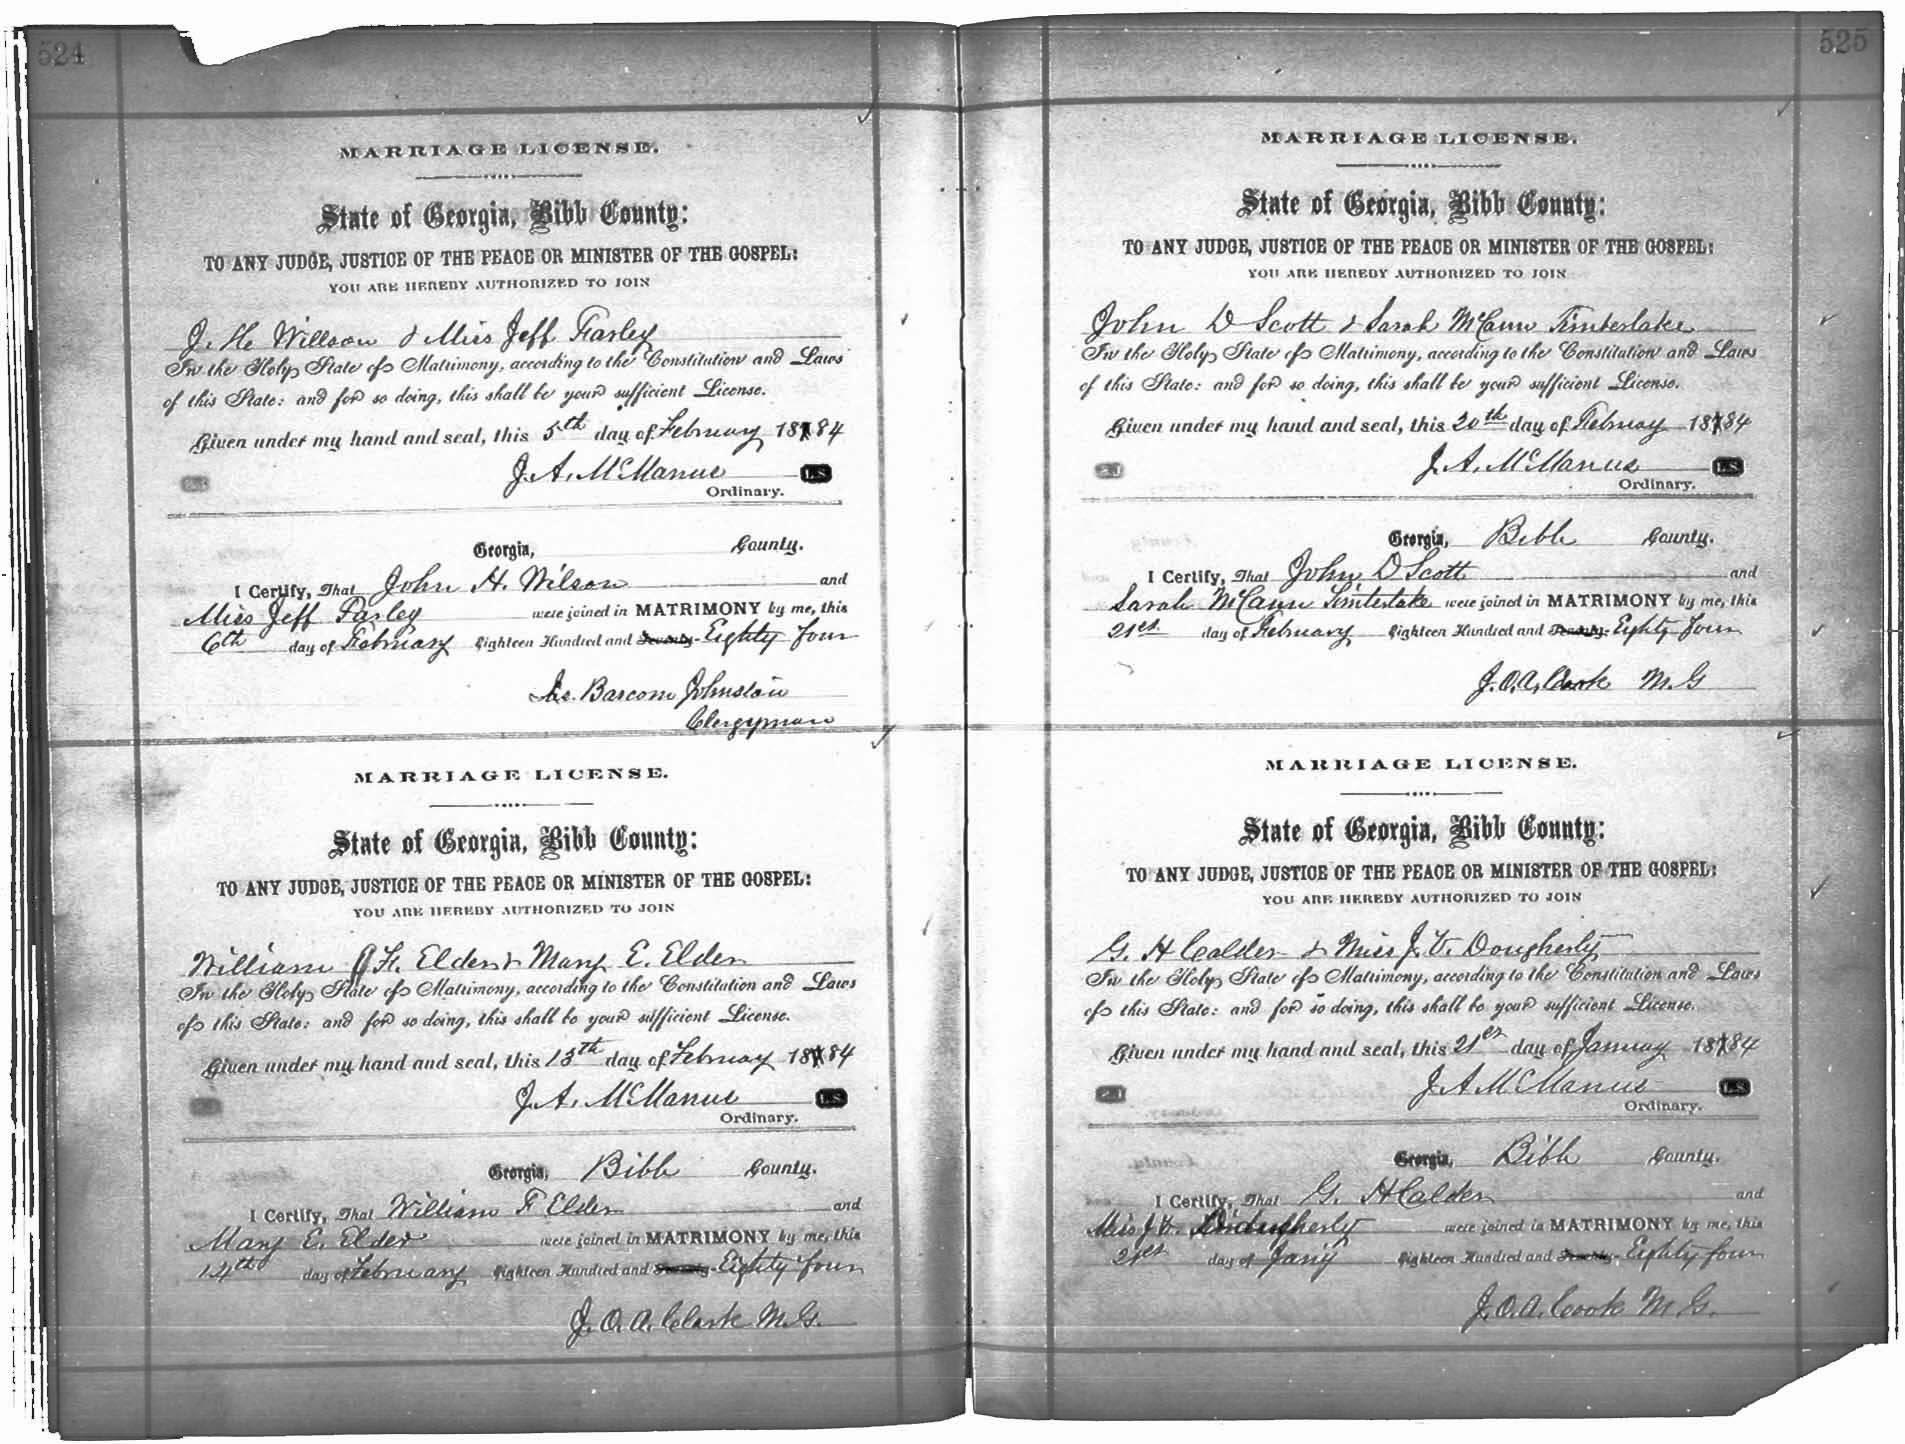 524
MARRIAGE LICENSE.
State of Georgia, Bibb County:
TO ANY JUDGE, JUSTICE OF THE PEACE OR MINISTER OF THE GOSPEL:
YOU ARE HEREBY AUTHORIZED TO JOIN
J. H. Willson & Miss Jeff Farley
In the Holy State of Matrimony, according to the Constitution and Laws
of this State: and for so doing, this shall be your sufficient License.
Given under my hand and seal, this 5th day of February 1884
J. A. McManus L.S.
Ordinary.
Georgia, County.
I Certify, That John H. Wilson and
Miss Jeff Farley were joined in MATRIMONY by me, this
6th day of February Eighteen Hundred and Seventy Eighty four
Jas. Barcom Johnston
Clergyman
MARRIAGE LICENSE.
State of Georgia, Bibb County:
TO ANY JUDGE, JUSTICE OF THE PEACE OR MINISTER OF THE GOSPEL:
YOU ARE HEREBY AUTHORIZED TO JOIN
William F. Elder & Mary E. Elder
In the Holy State of Matrimony, according to the Constitution and Laws
of this State: and for so doing, this shall be your sufficient License.
Given under my hand and seal, this 13th day of February 1884
J. A. McManus L.S.
Ordinary.
Georgia, Bibb County.
I Certify, That William F Elder and
Mary E. Elder were joined in MATRIMONY by me, this
14th day of February Eighteen Hundred and Seventy Eighty four
J. O. A. Clark M.G.
525
MARRIAGE LICENSE.
State of Georgia, Bibb County:
TO ANY JUDGE, JUSTICE OF THE PEACE OR MINISTER OF THE GOSPEL:
YOU ARE HEREBY AUTHORIZED TO JOIN
John D Scott & Sarah McCaun Timberlake
In the Holy State of Matrimony, according to the Constitution and Laws
of this State: and for so doing, this shall be your sufficient License.
Given under my hand and seal, this 20th day of February 1884
J. A. McManus L.S.
Ordinary.
Georgia, Bibb County.
I Certify, That John D Scott and
Sarah McCaun Timberlake were joined in MATRIMONY by me, this
21st day of February Eighteen Hundred and Seventy Eighty four
J. O. A. Clark M.G
MARRIAGE LICENSE.
State of Georgia, Bibb County:
TO ANY JUDGE, JUSTICE OF THE PEACE OR MINISTER OF THE GOSPEL:
YOU ARE HEREBY AUTHORIZED TO JOIN
G. H Calder & Miss J. V. Dougherty
In the Holy State of Matrimony, according to the Constitution and Laws
of this State: and for so doing, this shall be your sufficient License.
Given under my hand and seal, this 21st day of January 1884
J. A McManus L.S.
Ordinary.
Georgia, Bibb County.
I Certify, That G. H Calder and
Miss J. V. Dougherty were joined in MATRIMONY by me, this
21st day of Jany Eighteen Hundred and Seventy Eighty four
J. O. A. Cook M.G.